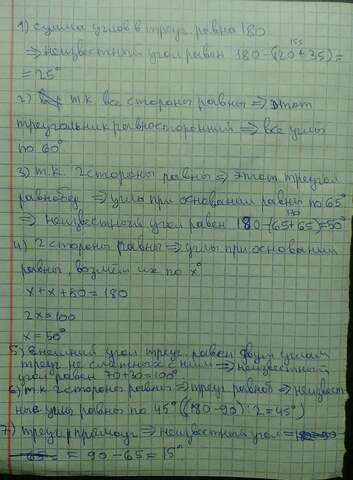 1) сумма углов в треуг равна 180
155
⇒ неизвестный угол равен 180-(120+35)=
= 25°
2) т.к. все стороны равны ⇒ этот
треугольник равносторонний ⇒ все углы
по 60°
3) т.к. 2 стороны равны ⇒ этот треугол
равнобед. ⇒ углы при основании равны по 65°
130
⇒ неизвестный угол равен 180-(65+65)=50°
4) 2 стороны равны ⇒ углы при основании
равны, возмём их по x°
x+x+80=180
2x=100
x=50°
5) Внешний угол треуг. равен двум углам
треуг не смежных с ним ⇒ неизвестный
угол равен 70+30=100°
6) т.к. 2 стороны равны ⇒ треуг равноб ⇒ неизвест-
ные углы равны по 45° ((180-90):2=45°)
7) треуг прямоуг ⇒ неизвестный угол =
= 90-65=15°